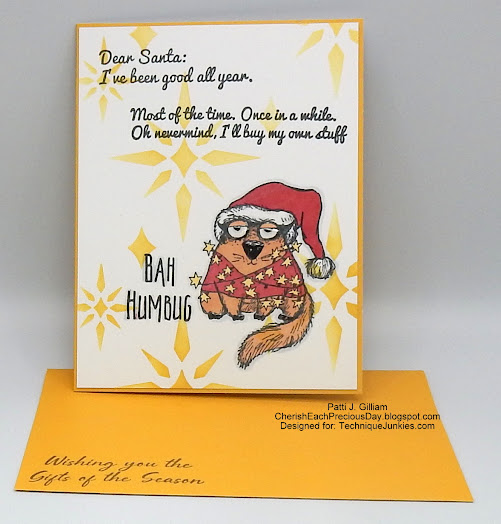 Dear Santa:
I've been good all year.
Most of the time. Once in a while.
Oh nevermind, I'll buy my own stuff
BAH
HUMBUG
Patti J. Gilliam
CherishEachPreciousDay.blogspot.com
Designed for: TechniqueJunkies.com
Wishing you the
Gifts of the Season